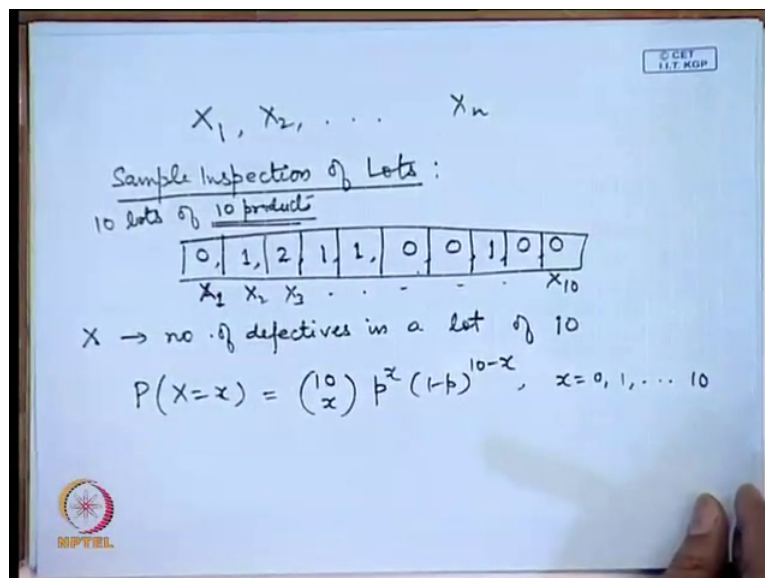 © CET
I.I.T. KGP
X₁, X₂, . . . Xₙ
Sample Inspection of Lots :
10 lots of 10 products
0, 1, 2 1, 1, 0 0 1 0 0
X₁ X₂ X₃ . . - - . . X₁₀
X → no. of defectives in a lot of 10
P(X=x) = (10 x) p^x (1-p)^{10-x}, x = 0, 1, ... 10
NPTEL